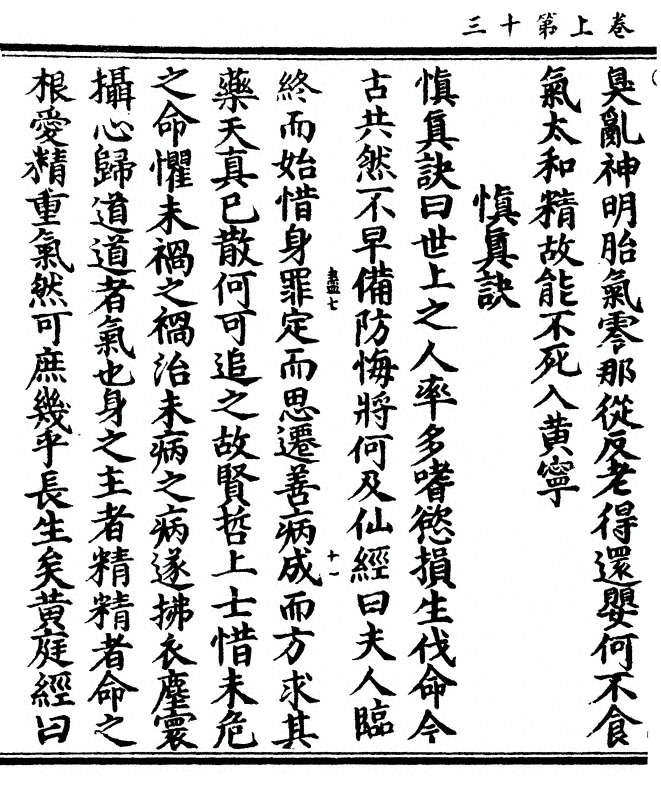 三十第上卷
臭亂神明胎氣零那從反老得還嬰何不食
氣太和精故能不死入黄寧
慎真訣
慎真訣曰世上之人率多嗜慾損生伐命今
古共然不早備防悔將何及仙經曰夫人臨
終而始惜身罪定而思遷善病成而方求其
藥天真已散何可追之故賢哲上士惜未危
之命懼未禍之禍治未病之病遂拂衣塵寰
攝心歸道道者氣也身之主者精精者命之
根愛精重氣然可庶幾乎長生矣黄庭經曰
十一